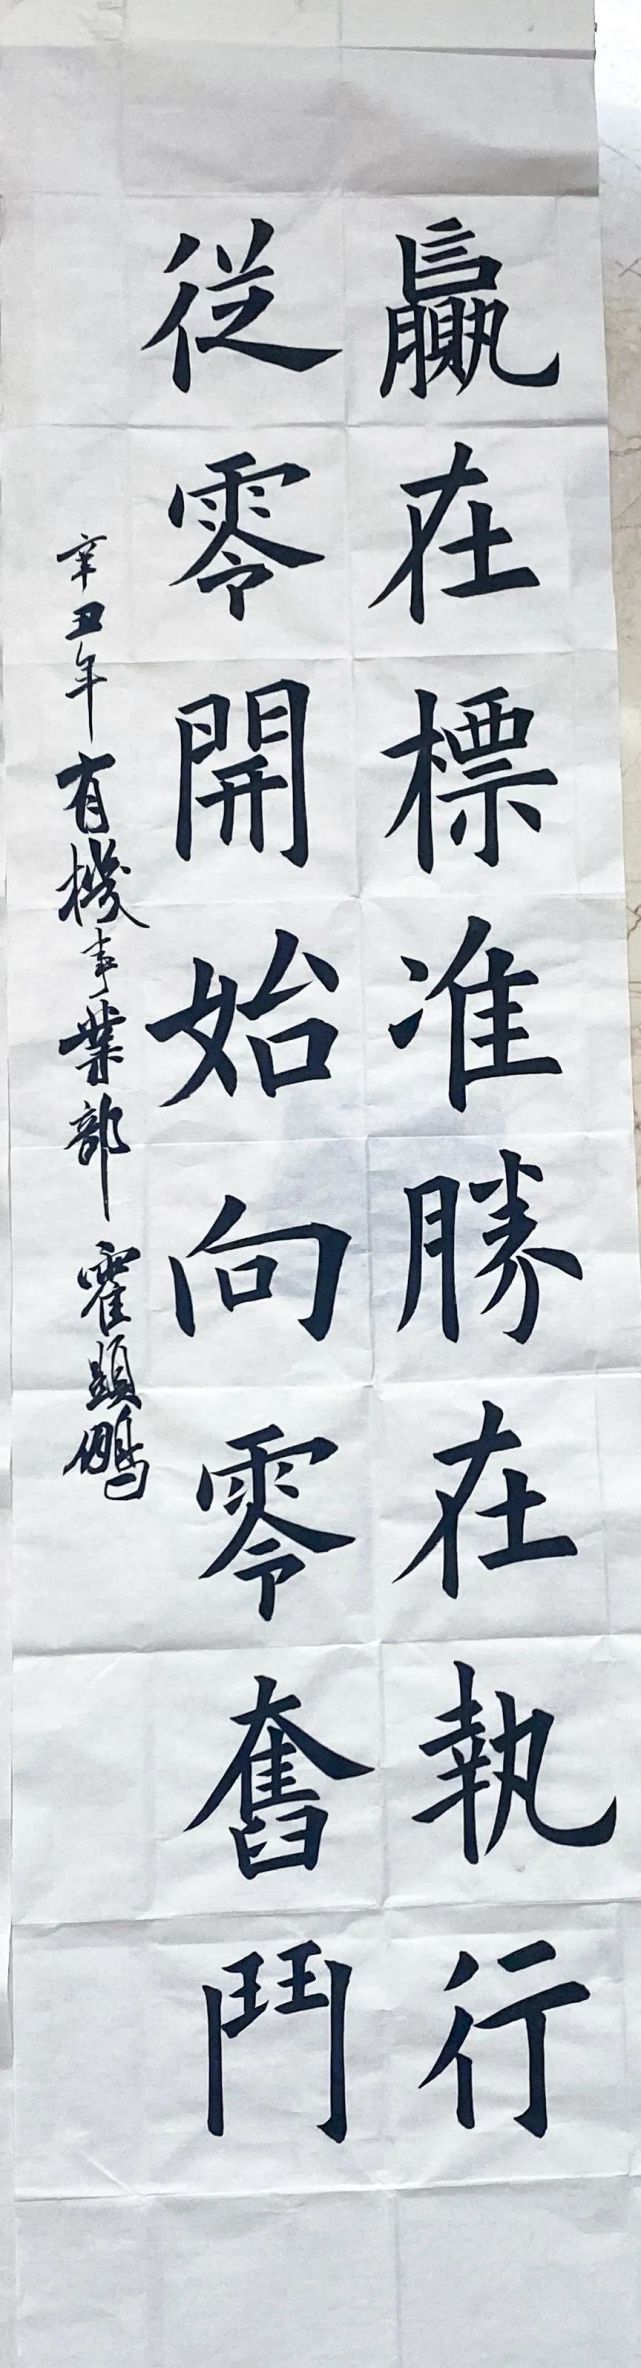 贏在標准勝在執行
従零開始向零奮鬥
辛丑年有機事業部 霍顕鵬